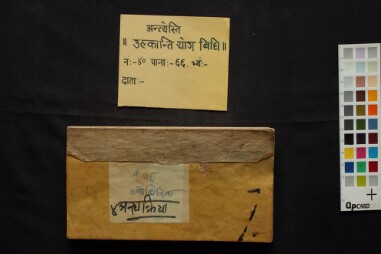 अन्त्येस्ति
॥ उत्क्रान्ति योग बिधि॥
नं:-४० पाना:-६६. भ्यं:-
दाता:-
४ अन्त्यक्रिया
QPCARD